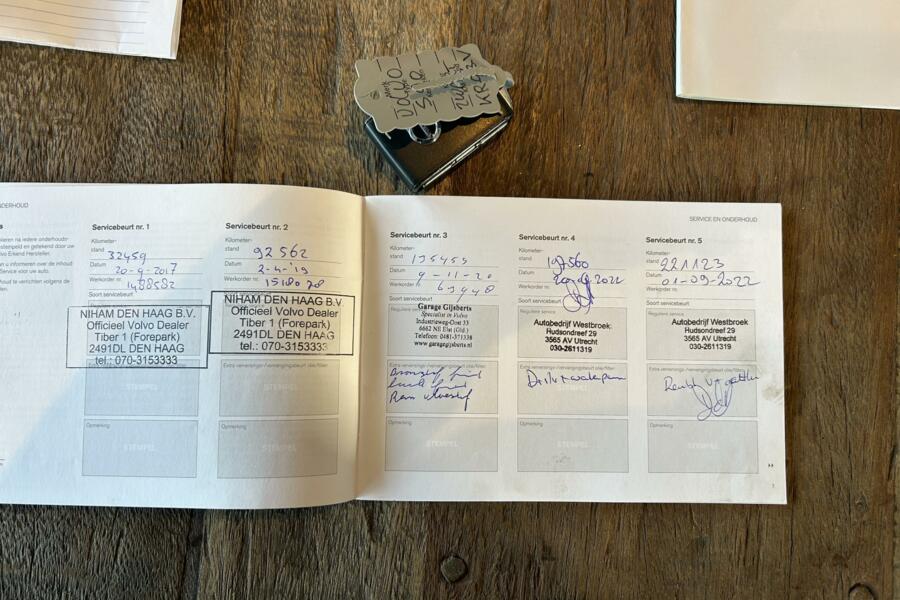 VOLVO
ONDERHOUD
Servicebeurt nr. 1
Kilometer-
stand 32459
Datum 20-9-2017
Werkorder nr. 1488582
Soort servicebeurt
NIHAM DEN HAAG B.V.
Officieel Volvo Dealer
Tiber 1 (Forepark)
2491DL DEN HAAG
tel.: 070-3153333
Extra verversings-/vervangingsbeurt olie/filter:
Opmerking
STEMPEL
Servicebeurt nr. 2
Kilometer-
stand 92562
Datum 2-4-'19
Werkorder nr.
Soort servicebeurt
NIHAM DEN HAAG B.V.
Officieel Volvo Dealer
Tiber 1 (Forepark)
2491DL DEN HAAG
tel.: 070-3153333
Extra verversings-/vervangingsbeurt olie/filter:
Opmerking
STEMPEL
SERVICE EN ONDERHOUD
Servicebeurt nr. 3
Kilometer-
stand 135455
Datum 9-11-20
Werkorder nr. 63448
Soort servicebeurt
Reguliere service
Garage Gijsberts
Specialist in Volvo
Industrieweg-Oost 33
6662 NE Elst (Gld.)
Telefoon: 0481-371338
www.garagegijsberts.nl
Extra verversings-/vervangingsbeurt olie/filter:
Opmerking
STEMPEL
Servicebeurt nr. 4
Kilometer-
stand
Datum
Werkorder nr.
Soort servicebeurt
Reguliere service
Autobedrijf Westbroek
Hudsondreef 29
3565 AV Utrecht
030-2611319
Extra verversings-/vervangingsbeurt olie/filter:
Opmerking
STEMPEL
Servicebeurt nr. 5
Kilometer-
stand 221123
Datum 01-09-2022
Werkorder nr.
Soort servicebeurt
Reguliere service
Autobedrijf Westbroek
Hudsondreef 29
3565 AV Utrecht
030-2611319
Extra verversings-/vervangingsbeurt olie/filter:
Opmerking
STEMPEL